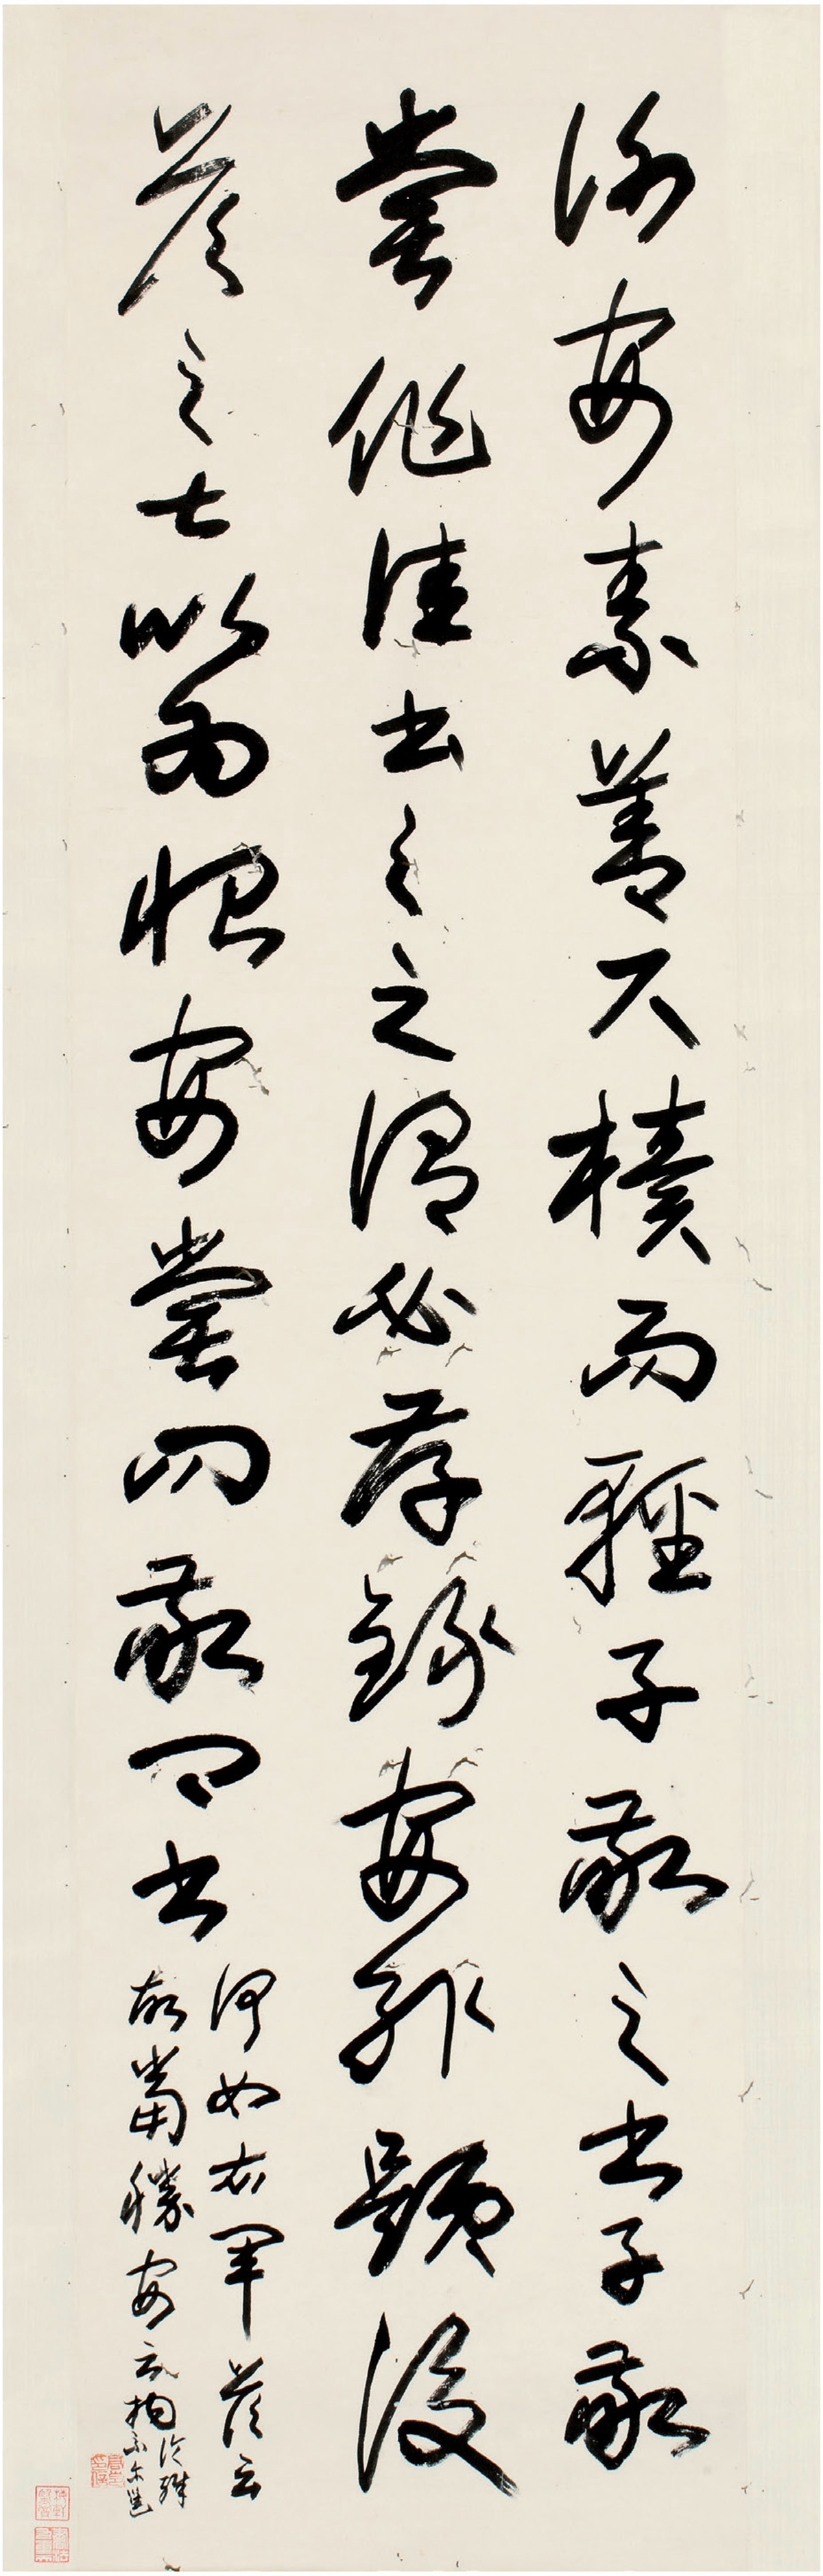 謝安素善尺牘而輕子敬之書子敬
嘗作佳書與之謂必存錄安輒題後
答之甚以為恨安嘗問敬卿書
何如右軍答云
故當勝安云物
論殊
不尔